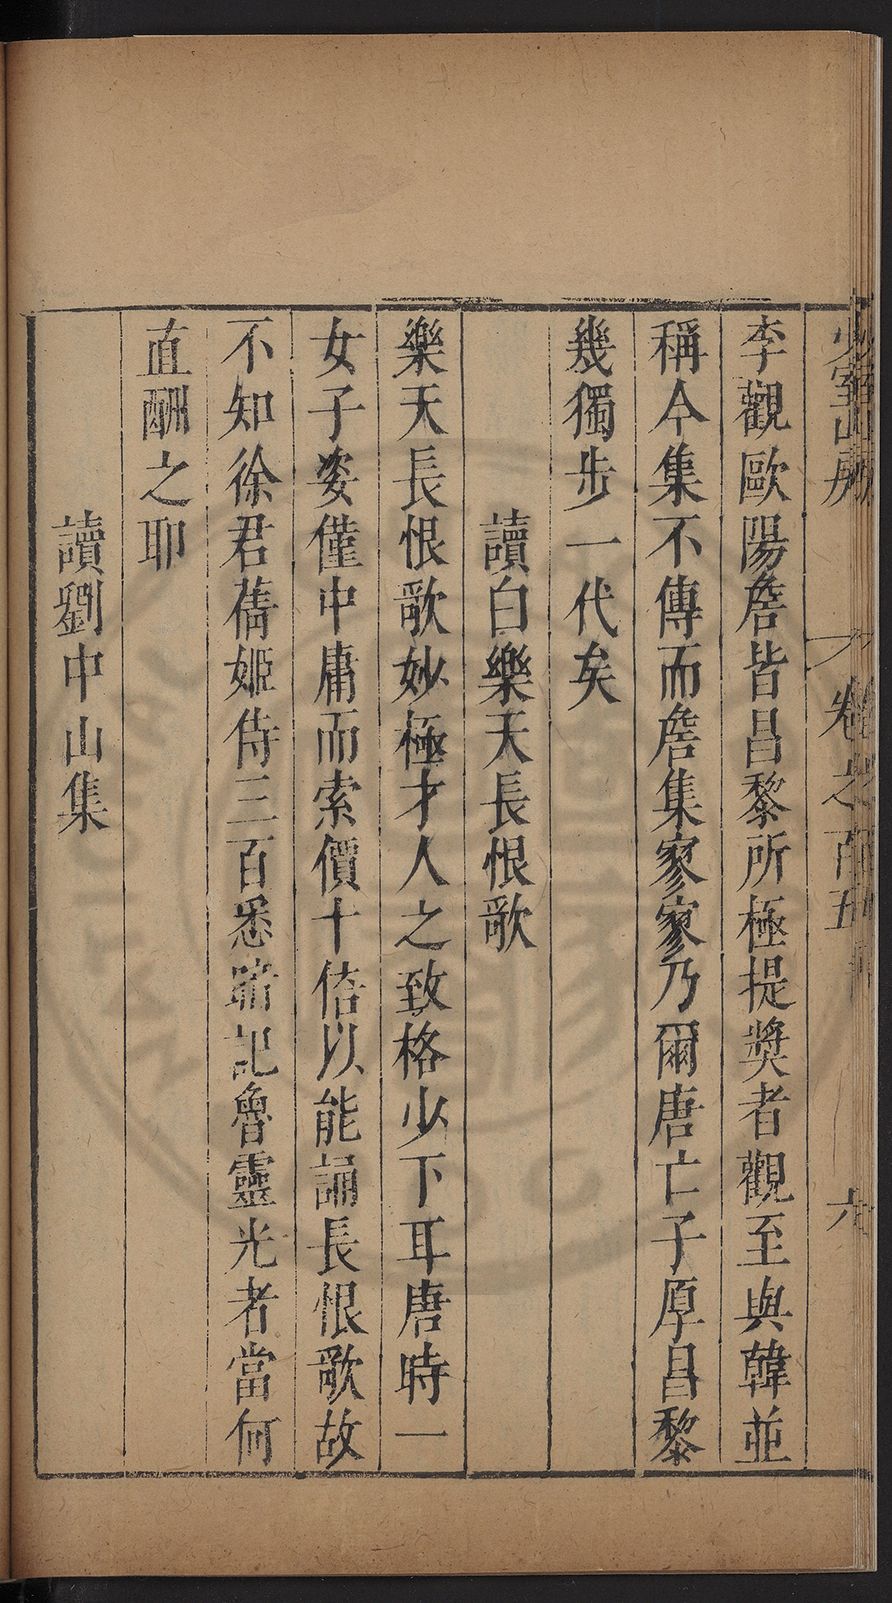 少室山房
卷之百五
六
李觀歐陽詹皆昌黎所極提奬者觀至與韓並
稱今集不傳而詹集寥寥乃爾唐亡子厚昌黎
幾獨步一代矣
讀白樂天長恨歌
樂天長恨歌妙極才人之致格少下耳唐時一
女子姿僅中庸而索價十倍以能誦長恨歌故
不知徐君蒨姬侍三百悉諳記魯靈光者當何
直酬之耶
讀劉中山集